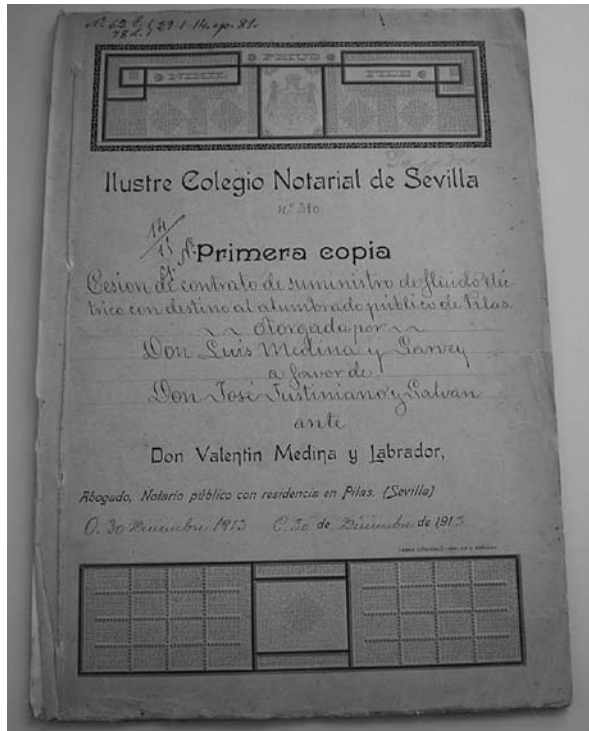 Nº 62
29-1-14
NIHIL PRIUS FIDE
Ilustre Colegio Notarial de Sevilla
nº 310
14
Primera copia
Cesion de contrato de suministro de flúido eléc-
trico con destino al alumbrado público de Pilas.
otorgada por
Don Luis Medina y Garvey
a favor de
Don José Justiniano y Galvan
ante
Don Valentin Medina y Labrador,
Abogado, Notario público con residencia en Pilas. (Sevilla)
O. 30 Diciembre 1913 C. 30 de Diciembre de 1913